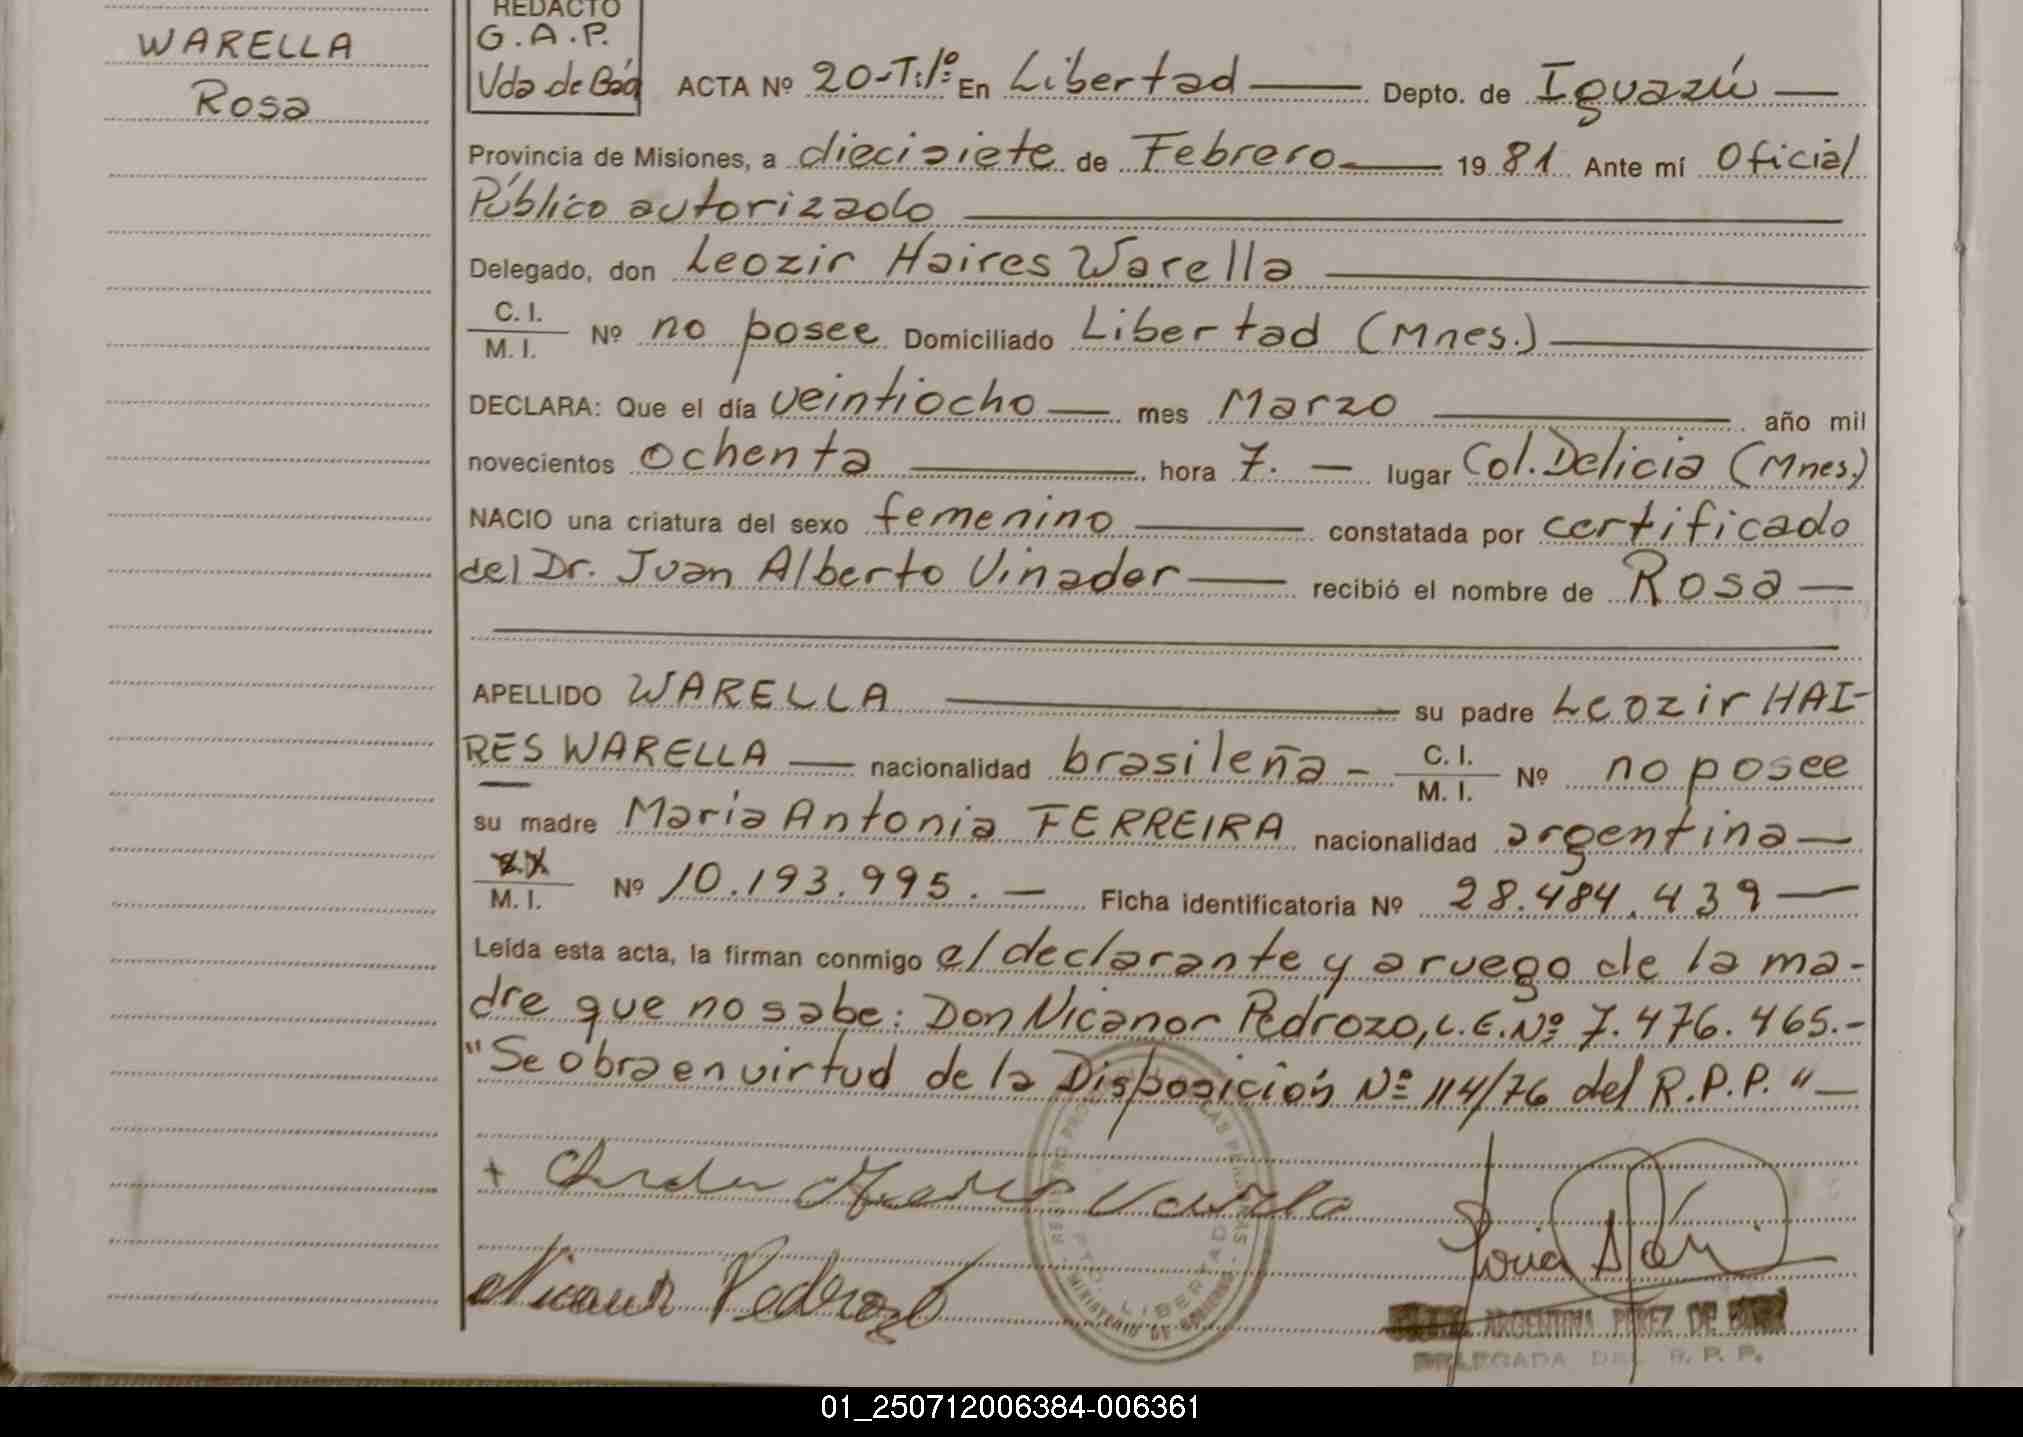 REDACTO
WARELLA
Rosa
G.A.P.
Vda de Báq
ACTA Nº 20-T:1º En Libertad Depto. de Iguazú
Provincia de Misiones, a diecisiete de Febrero 19 81 Ante mí Oficial
Público autorizado
Delegado, don Leozir Haires Warella
C. I.
M. I. Nº no posee Domiciliado Libertad (Mnes.)
DECLARA: Que el día veintiocho mes Marzo año mil
novecientos ochenta, hora 7. — lugar Col. Delicia (Mnes.)
NACIO una criatura del sexo femenino constatada por certificado
del Dr. Juan Alberto Vinader recibió el nombre de Rosa
APELLIDO WARELLA su padre Leozir HAI-
RES WARELLA nacionalidad brasileña - C. I.
M. I. Nº no posee
su madre María Antonia FERREIRA nacionalidad argentina
M. I. Nº 10.193.995. — Ficha identificatoria Nº 28.484.439
Leída esta acta, la firman conmigo el declarante y a ruego de la ma-
dre que no sabe: Don Nicanor Pedrozo, L.E. Nº 7.476.465.-
"Se obra en virtud de la Disposición Nº 114/76 del R.P.P."
Nicanor Pedrozo
PTO. LIBERTAD
MINISTERIO DE GOBIERNO
ARGENTINA PEREZ DE
DELEGADA DEL R. P. P.
01_250712006384-006361